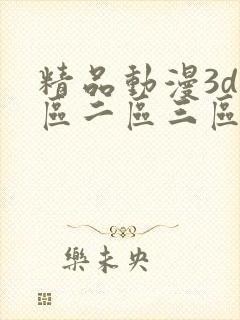 精品動漫3d
區二區三區
樂未央